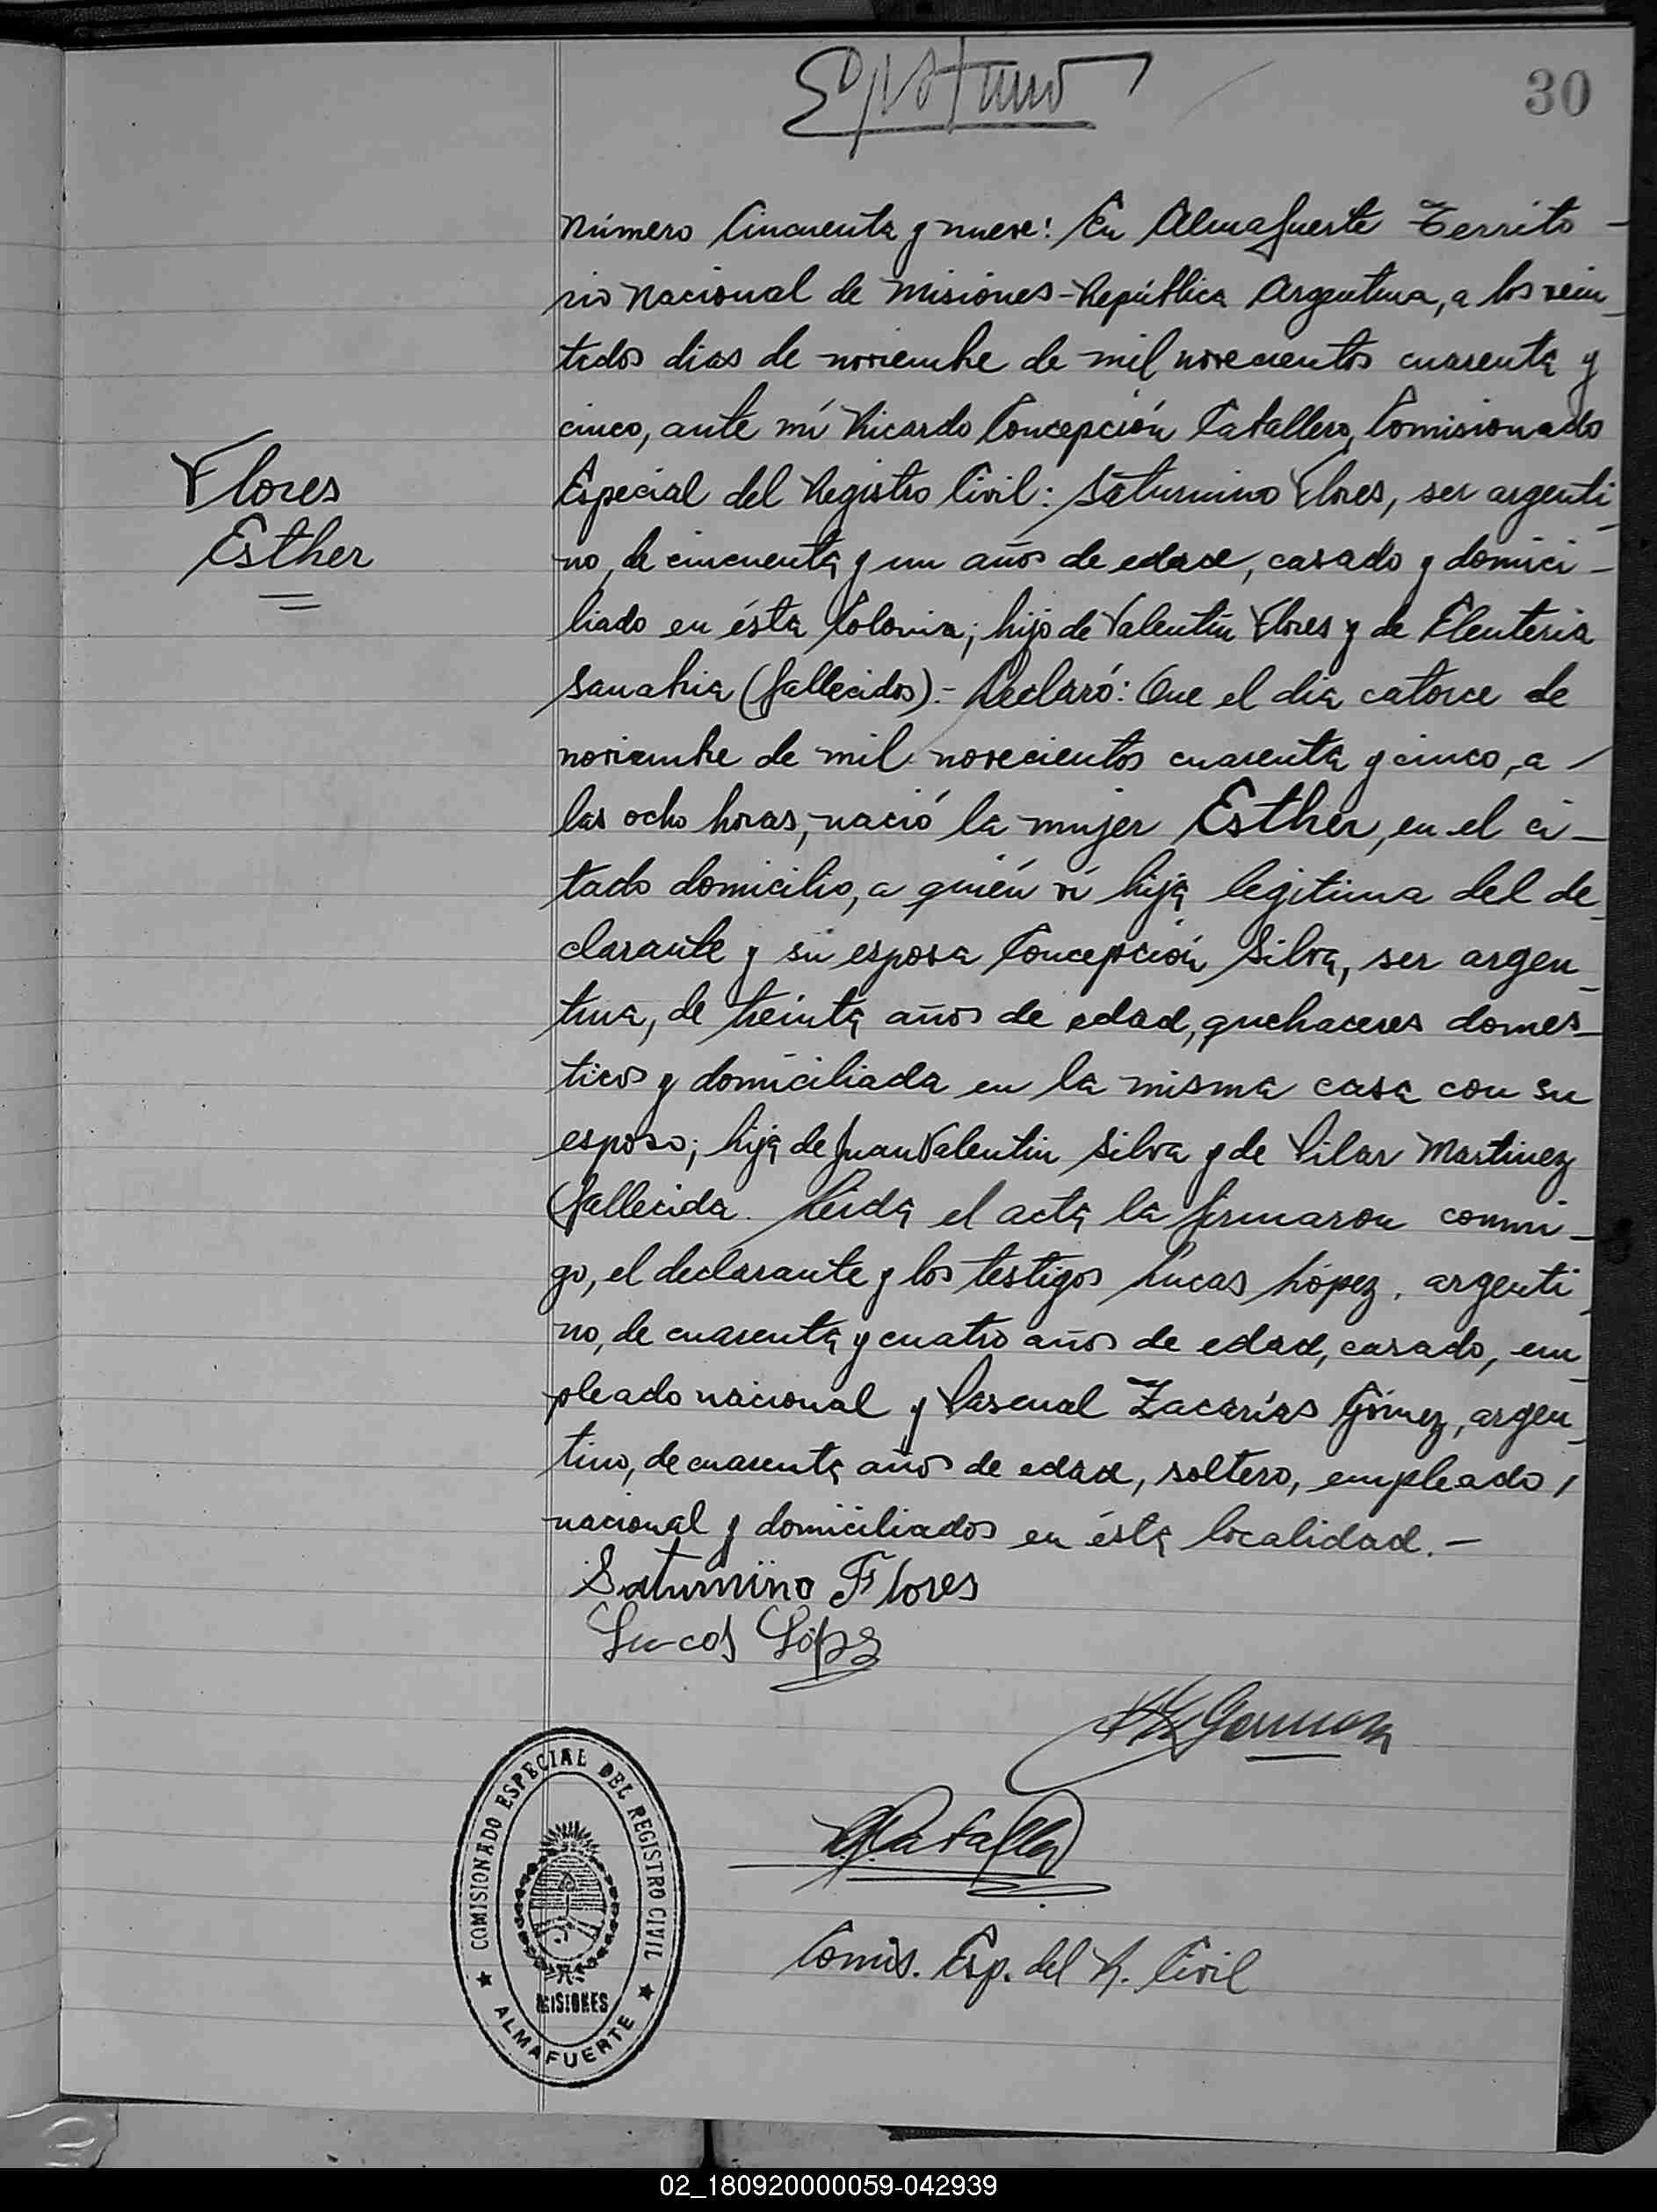 30
Número Cincuenta y nueve: En Almafuerte Territo-
rio Nacional de Misiones-República Argentina, a los vein-
tidos dias de noviembre de mil novecientos cuarenta y
cinco, ante mí Ricardo Concepción Caballero, Comisionado
Flores
Esther
Especial del Registro Civil: Saturnino Flores, ser argenti-
no, de cincuenta y un años de edad, casado y domici-
liado en ésta Colonia; hijo de Valentin Flores y de Eleuteria
Sanabria (fallecidos).- Declaró: Que el dia catorce de
noviembre de mil novecientos cuarenta y cinco, a
las ocho horas, nació la mujer Esther, en el ci-
tado domicilio, a quién ví hija legitima del de-
clarante y su esposa Concepción Silva, ser argen-
tina, de treinta años de edad, quehaceres domes-
ticos y domiciliada en la misma casa con su
esposo; hija de Juan Valentin Silva y de Pilar Martinez
(fallecida. Leida el acta la firmaron conmi-
go, el declarante y los testigos Lucas López, argenti-
no, de cuarenta y cuatro años de edad, casado, em-
pleado nacional y Pascual Zacarías Gómez, argen-
tino, de cuarenta años de edad, soltero, empleado
nacional y domiciliados en ésta localidad.-
Saturnino Flores
Lucas López
COMISIONADO ESPECIAL DEL REGISTRO CIVIL
MISIONES
ALMAFUERTE
Comis. Esp. del R. Civil
02_180920000059-042939